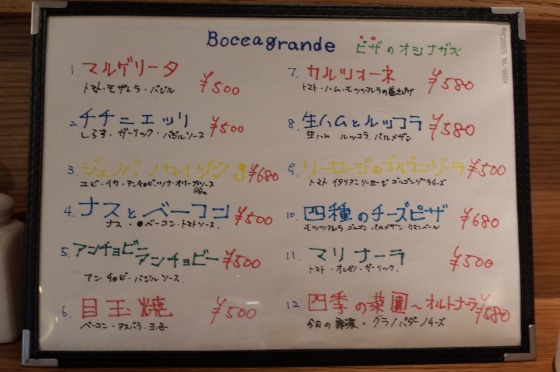 Boccagrande ピザのオシナガキ
1. マルゲリータ ¥500
トマト・モザレラ・バジル
2. チチニエッリ ¥500
しらす・ガーリック・バジルソース
3. ¥680
エビ・イカ・アンチョビ・ツナ・オリーブ
4. ナスとベーコン ¥500
ナス・ベーコン・トマトソース
5. アンチョビーアンチョビー ¥500
アンチョビ・バジルソース
6. 目玉焼 ¥500
ベーコン・アスパラ・玉子
7. カルツォーネ ¥580
トマト・ハム・モッツァレラの包み
8. 生ハムとルッコラ ¥580
生ハム ルッコラ パルメザン
9. ソーセージのゴルゴンゾーラ ¥500
トマト イタリアンソーセージ ゴルゴンゾーラチーズ
10. 四種のチーズピザ ¥680
モッツァレラ ゴルゴンゾーラ パルメザン
11. マリナーラ ¥500
トマト・オレガノ・ガーリック
12. 四季の菜園〜オルトナーラ ¥580
今日の野菜・グラナパダーノチーズ